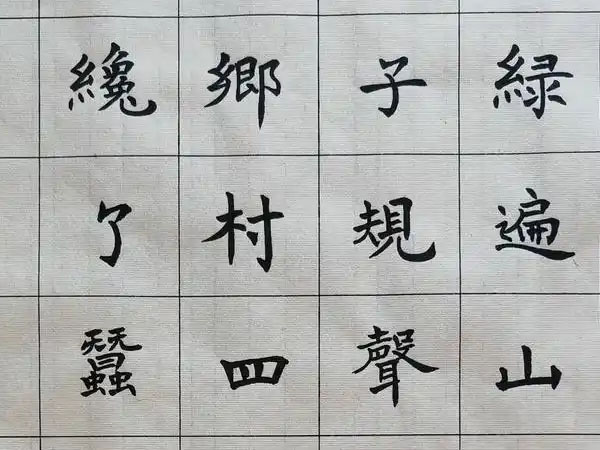 緑遍山
子規聲
鄉村四
纔了蠶